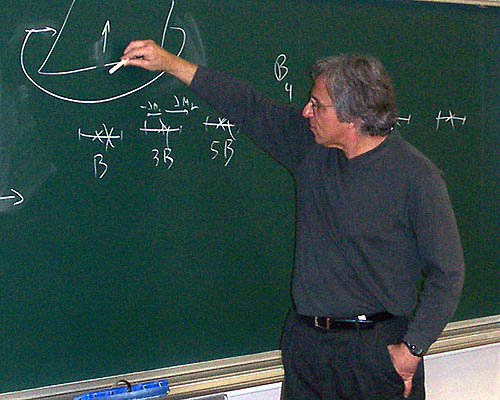 B
4
B
3B
5B